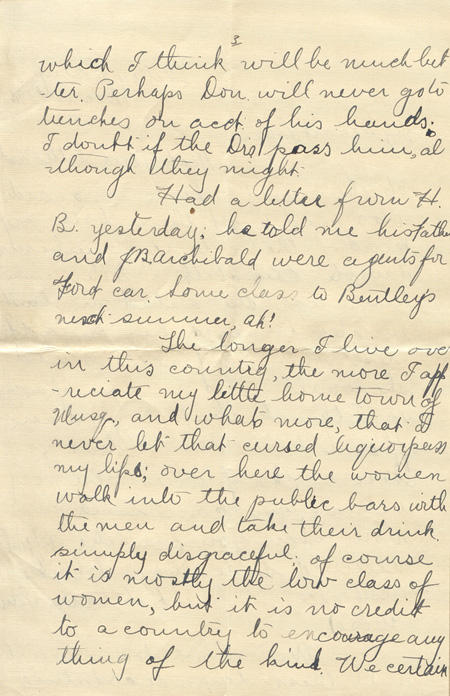 3
which I think will be much bet
-ter. Perhaps Don will never go to
trenches on acct of his hands.
I doubt if the Drs pass him, al
-though they might.
Had a letter from H.
B. yesterday; he told me his Father
and JB Archibald were agents for
Ford car. Some class to Bentley's
next summer, ah!
The longer I live over
in this country, the more I app
-reciate my little home town of
Musq, and whats more, that I
never let that cursed liquor pass
my lips; over here the women
walk into the public bars with
the men and take their drink.
simply disgraceful; of course
it is mostly the low class of
women, but it is no credit
to a country to encourage any
thing of the kind. We certain